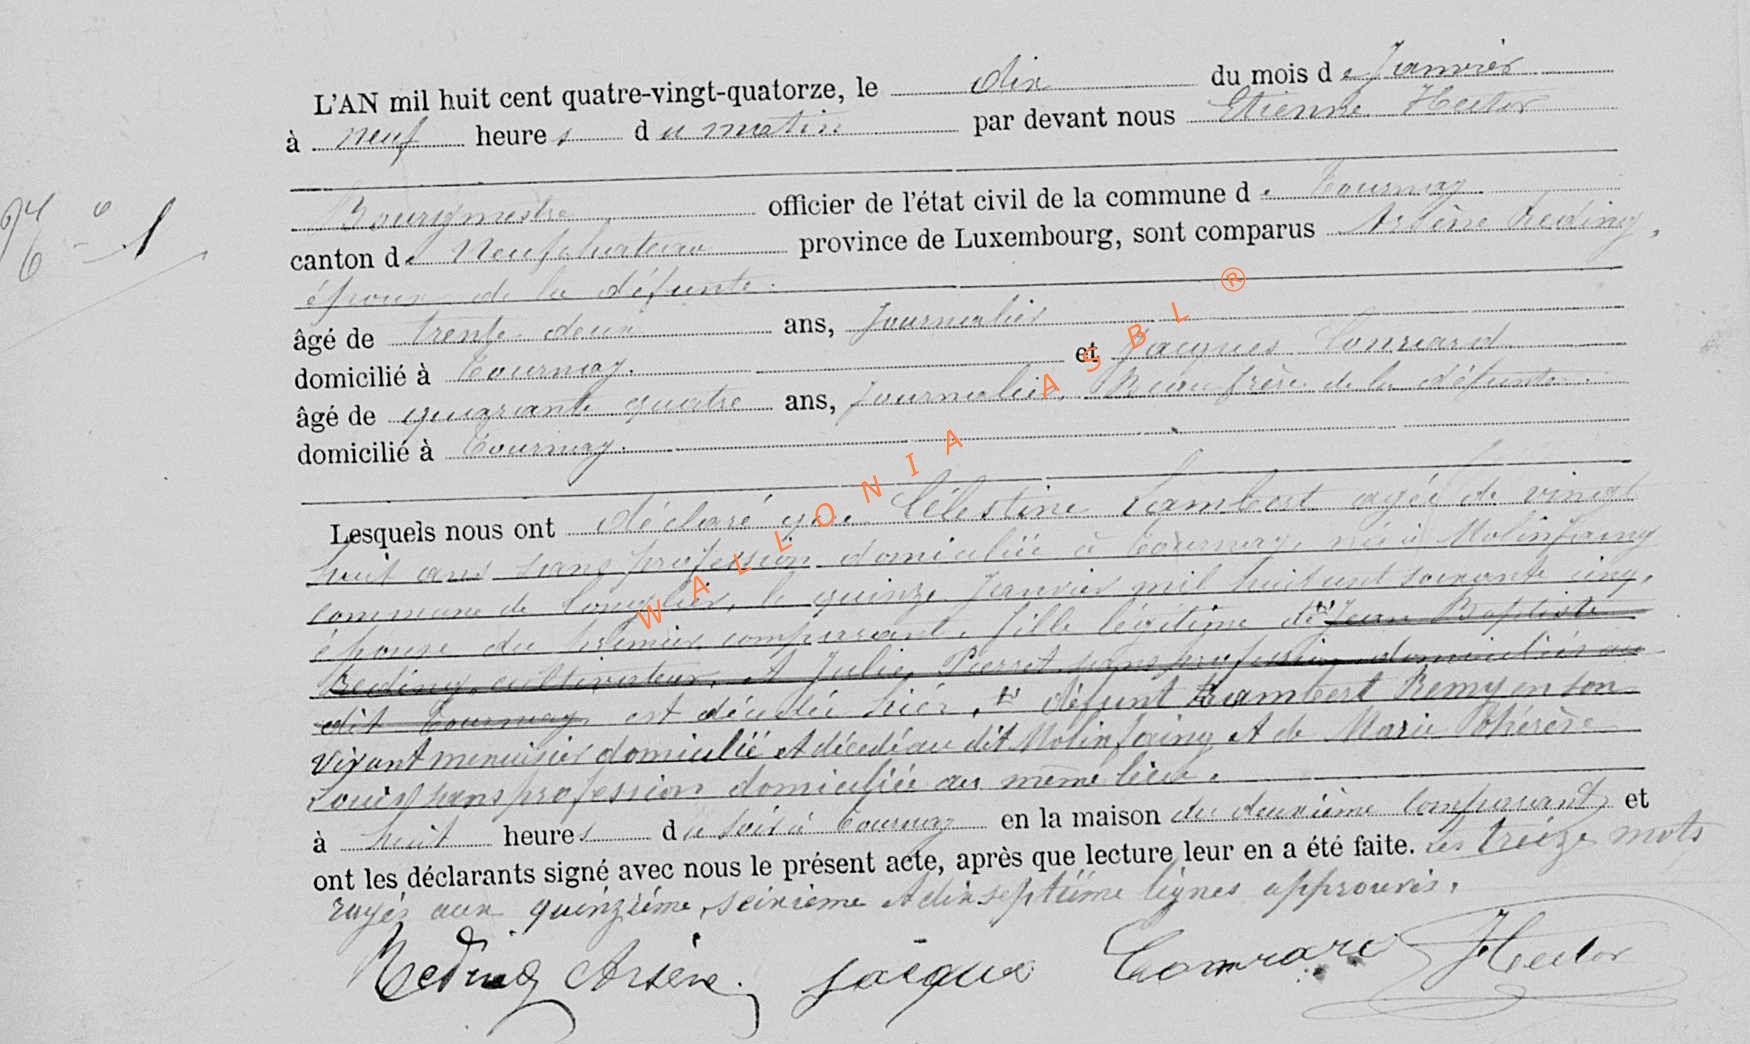 L'AN mil huit cent quatre-vingt-quatorze, le dix du mois de Janvier
à neuf heures du matin par devant nous Etienne Hector
N° 1
Bourgmestre officier de l'état civil de la commune de Tournay
canton de Neufchateau province de Luxembourg, sont comparus Arsène Reding,
époux de la défunte.
âgé de trente deux ans, Journalier
domicilié à Tournay. et Jacques Conrard
âgé de quarante quatre ans, journalier, Beau frère de la défunte.
domicilié à Tournay.
Lesquels nous ont déclaré que Célestine Lambert agée de vingt
huit ans sans profession domiciliée à Tournay, née à Molinfaing
commune de Longlier, le quinze Janvier mil huit cent soixante cinq,
épouse du premier comparant, fille légitime de Jean Baptiste
Reding, cultivateur, et Julie Pierret sans profession domiciliés au
dit Tournay est décédée hier, défunt Lambert Remy en son
vivant menuisier domicilié et décédé au dit Molinfaing et de Marie Thérèse
Louis sans profession domiciliée au même lieu.
à huit heures du soir à Tournay en la maison du deuxième comparant, et
ont les déclarants signé avec nous le présent acte, après que lecture leur en a été faite. Les treize mots
rayés aux quinzième, seizième et dix septième lignes approuvés.
Reding Arsène. Jacque Conrard Hector
WALLONIA ASBL ®